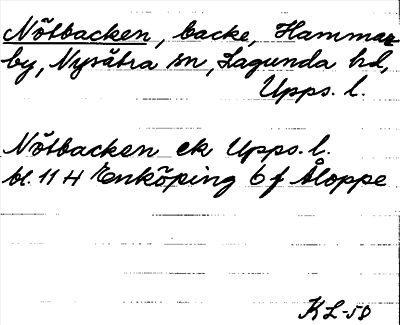 Nötbacken, backe, Hammar-
by, Nysätra sn, Lagunda hd,
Upps. l.
Nötbacken ek Upps. l.
bl. 11 H Enköping 6 f Åloppe
KL-58